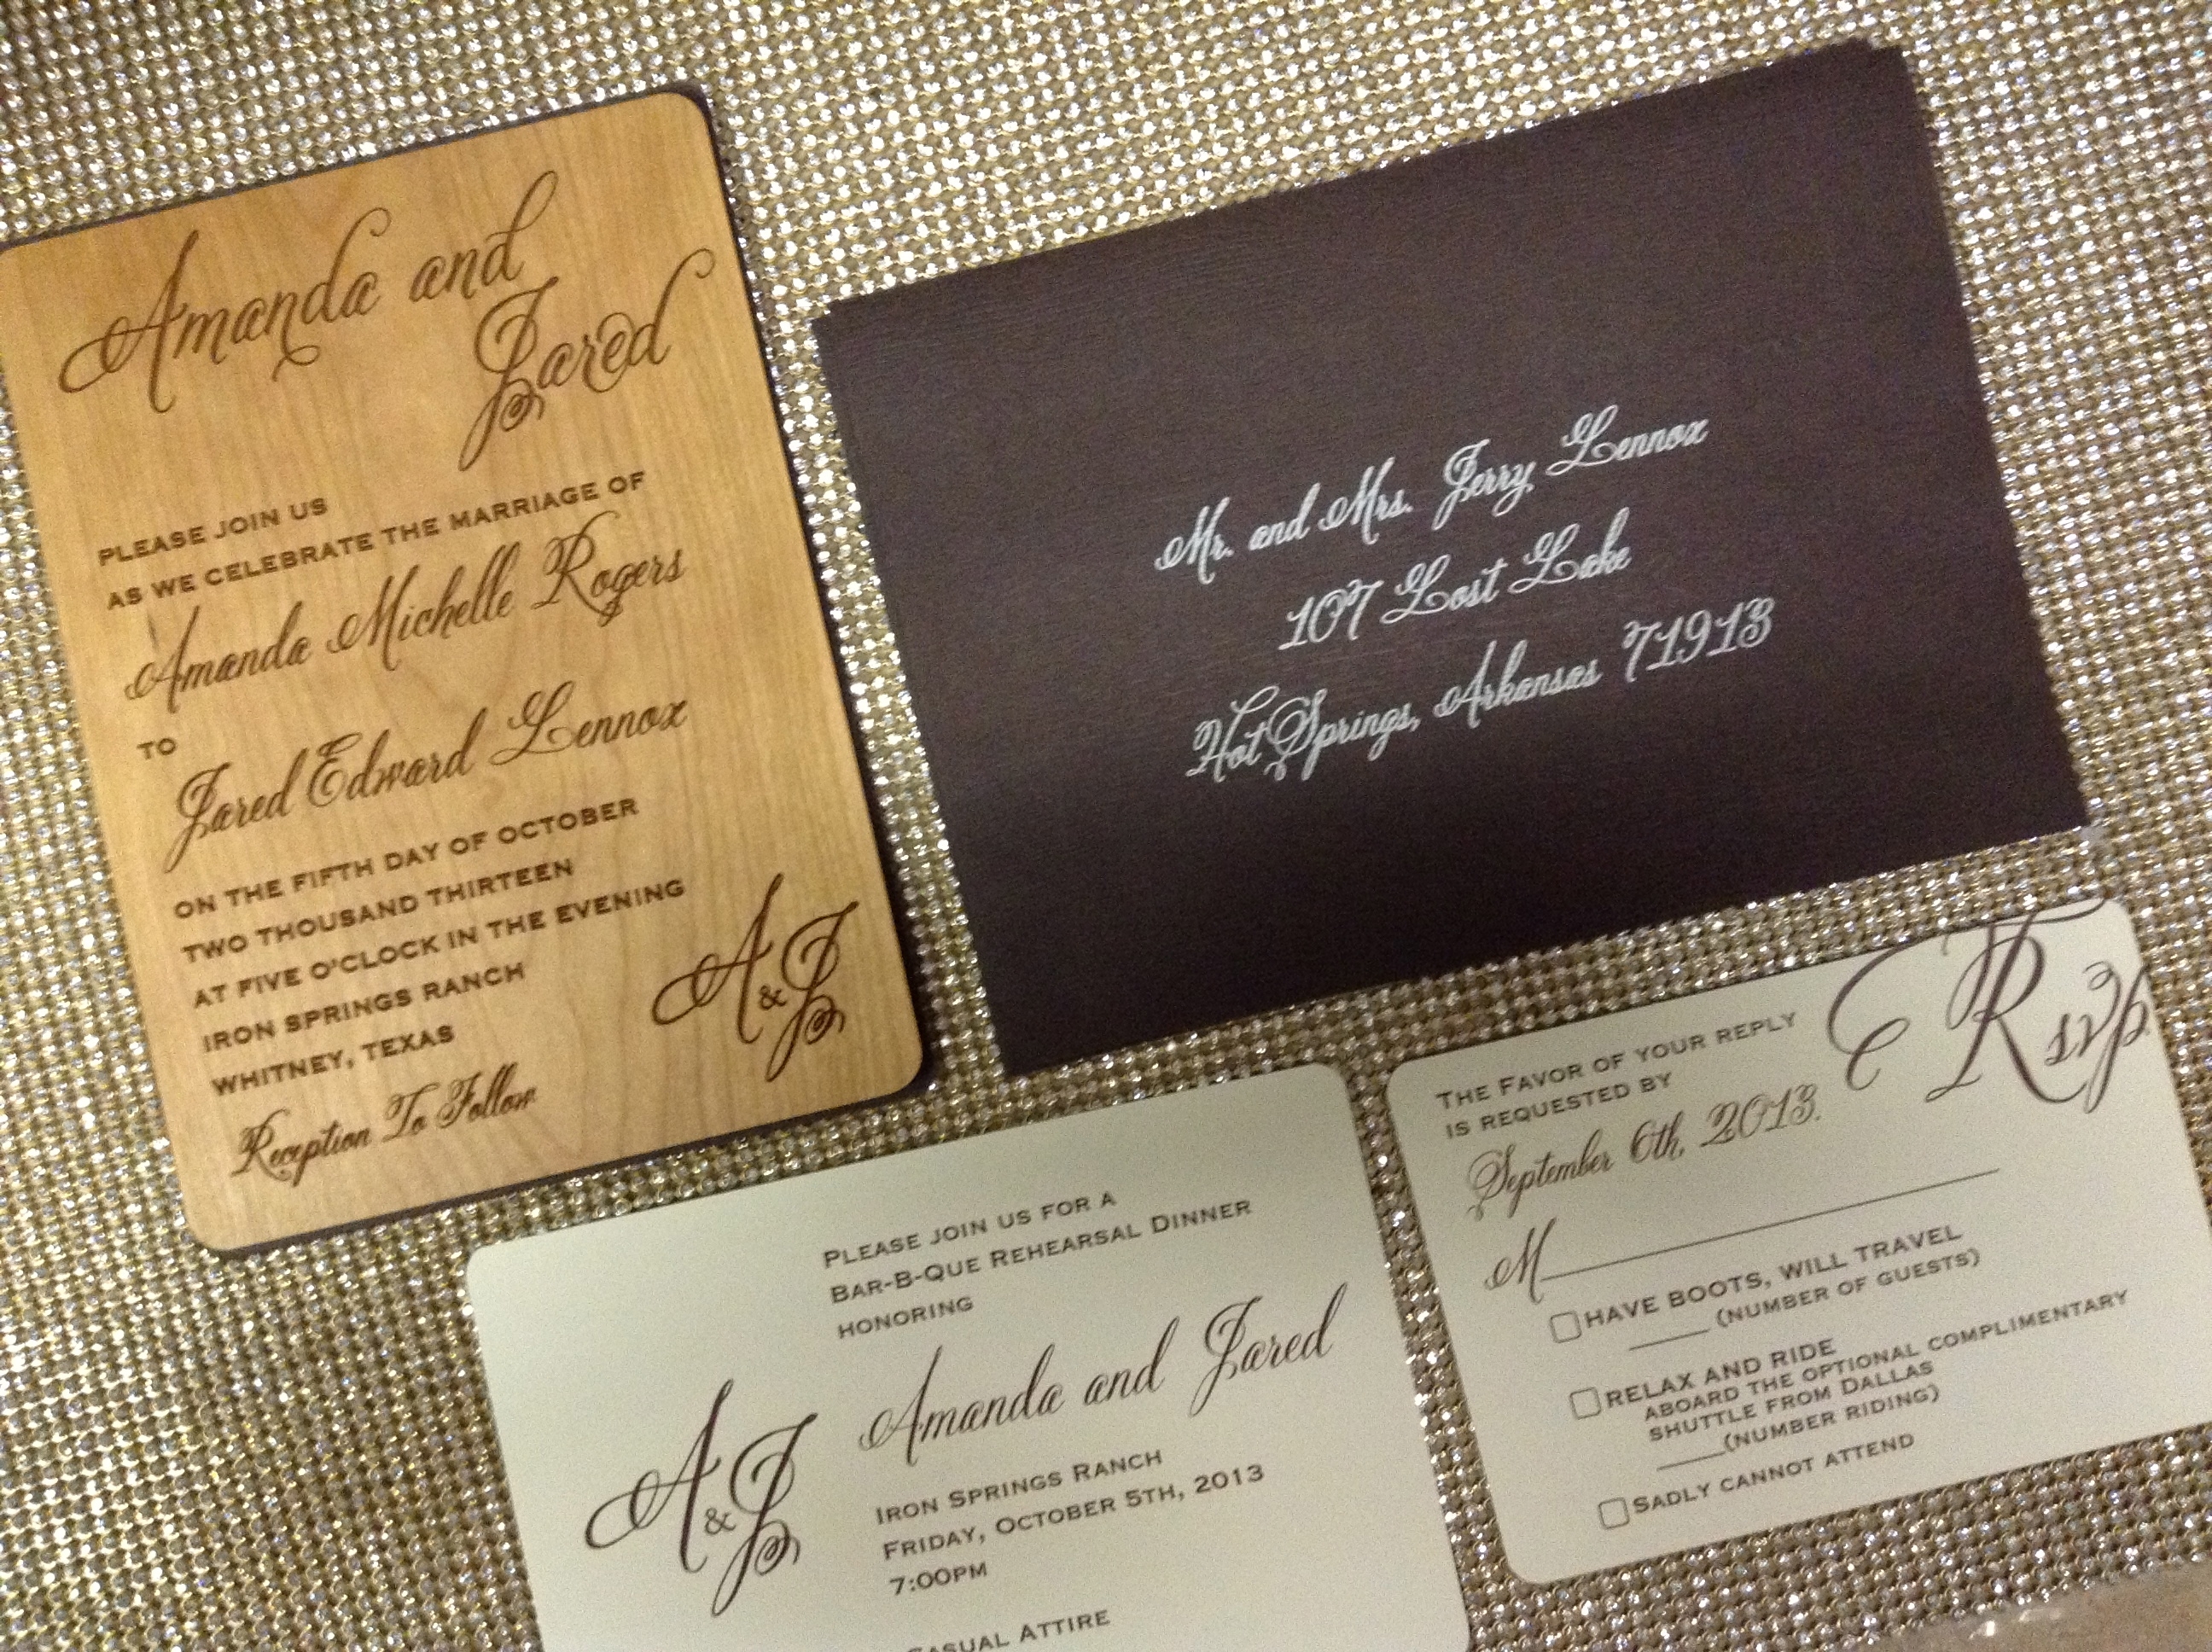 Amanda and
Jared
PLEASE JOIN US
AS WE CELEBRATE THE MARRIAGE OF
Amanda Michelle Rogers
TO
Jared Edward Lennox
ON THE FIFTH DAY OF OCTOBER
TWO THOUSAND THIRTEEN
AT FIVE O'CLOCK IN THE EVENING
IRON SPRINGS RANCH
WHITNEY, TEXAS
Reception To Follow
A & J
Mr. and Mrs. Jerry Lennox
107 Lost Lake
Hot Springs, Arkansas 71913
PLEASE JOIN US FOR A
BAR-B-QUE REHEARSAL DINNER
HONORING
Amanda and Jared
A & J
IRON SPRINGS RANCH
FRIDAY, OCTOBER 5TH, 2013
7:00PM
CASUAL ATTIRE
Rsvp
THE FAVOR OF YOUR REPLY
IS REQUESTED BY
September 6th, 2013.
M
HAVE BOOTS, WILL TRAVEL
(NUMBER OF GUESTS)
RELAX AND RIDE
ABOARD THE OPTIONAL COMPLIMENTARY
SHUTTLE FROM DALLAS
(NUMBER RIDING)
SADLY CANNOT ATTEND